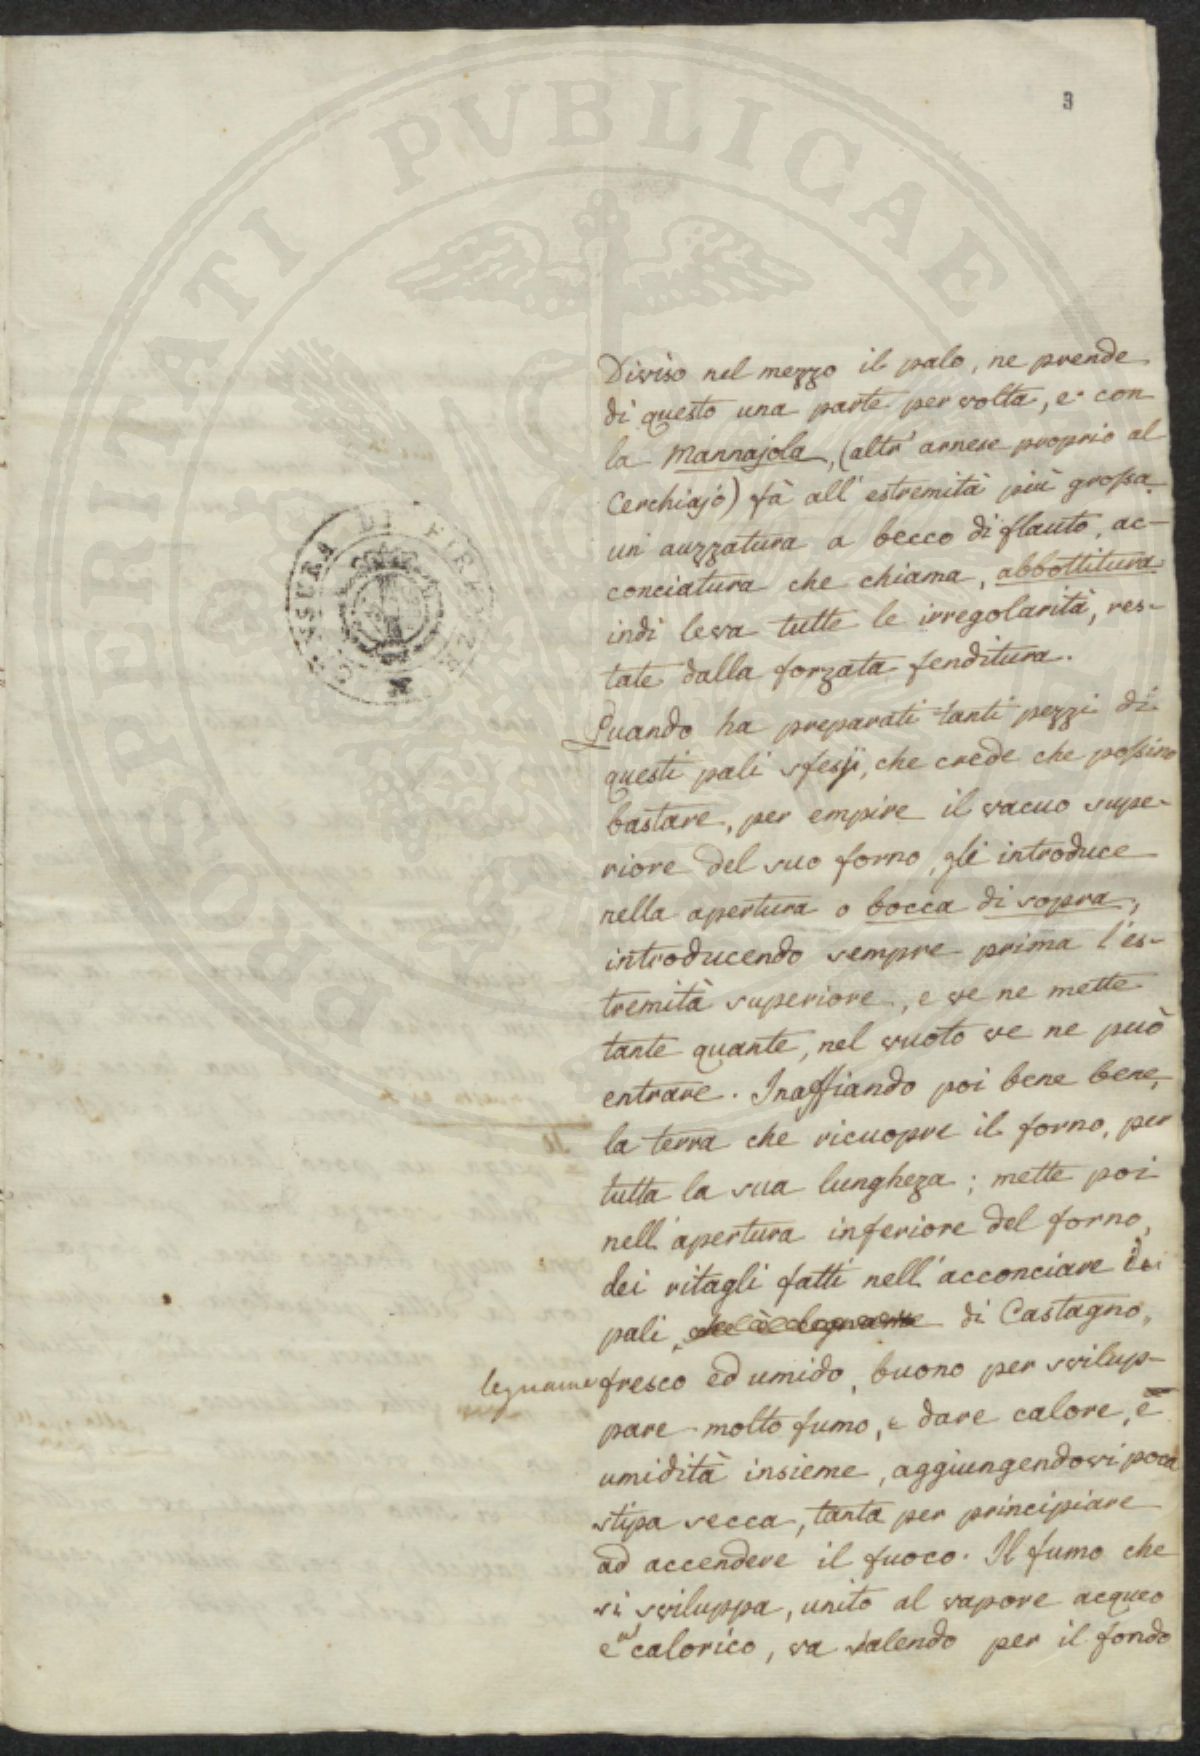 3
Diviso nel mezzo il palo, ne prende
di questo una parte per volta, e con
la Mannajola, (altr' arnese proprio al
Cerchiajo) fà all' estremità più grossa
un' auzzatura a becco di flauto, ac-
conciatura che chiama, abbottitura
indi leva tutte le irregolarità, res-
tate dalla forzata fenditura.
Quando ha preparati tanti pezzi di
questi pali sfessi, che crede che possino
bastare, per empire il vacuo supe-
riore del suo forno, gli introduce
nella apertura o bocca di sopra,
introducendo sempre prima l'es-
tremità superiore, e ve ne mette
tante quante, nel vuoto ve ne può
entrare. Inaffiando poi bene bene,
la terra che ricuopre il forno, per
tutta la sua lungheza; mette poi
nell' apertura inferiore del forno,
dei ritagli fatti nell' acconciare i
pali, di Castagno,
legname fresco ed umido, buono per svilup-
pare molto fumo, e dare calore, e
umidità insieme, aggiungendovi poca
stipa secca, tanta per principiare
ad accendere il fuoco. Il fumo che
si sviluppa, unito al vapore acqueo
e calorico, va salendo per il fondo
PROSPERITATI PVBLICAE
CENSURA DI FIRENZE